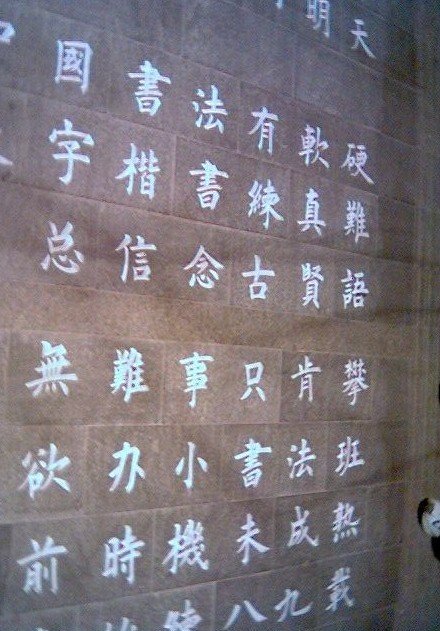 明天
國書法有軟硬
字楷書練真難
总信念古賢語
無難事只肯攀
欲办小書法班
前時機未成熱
八九載